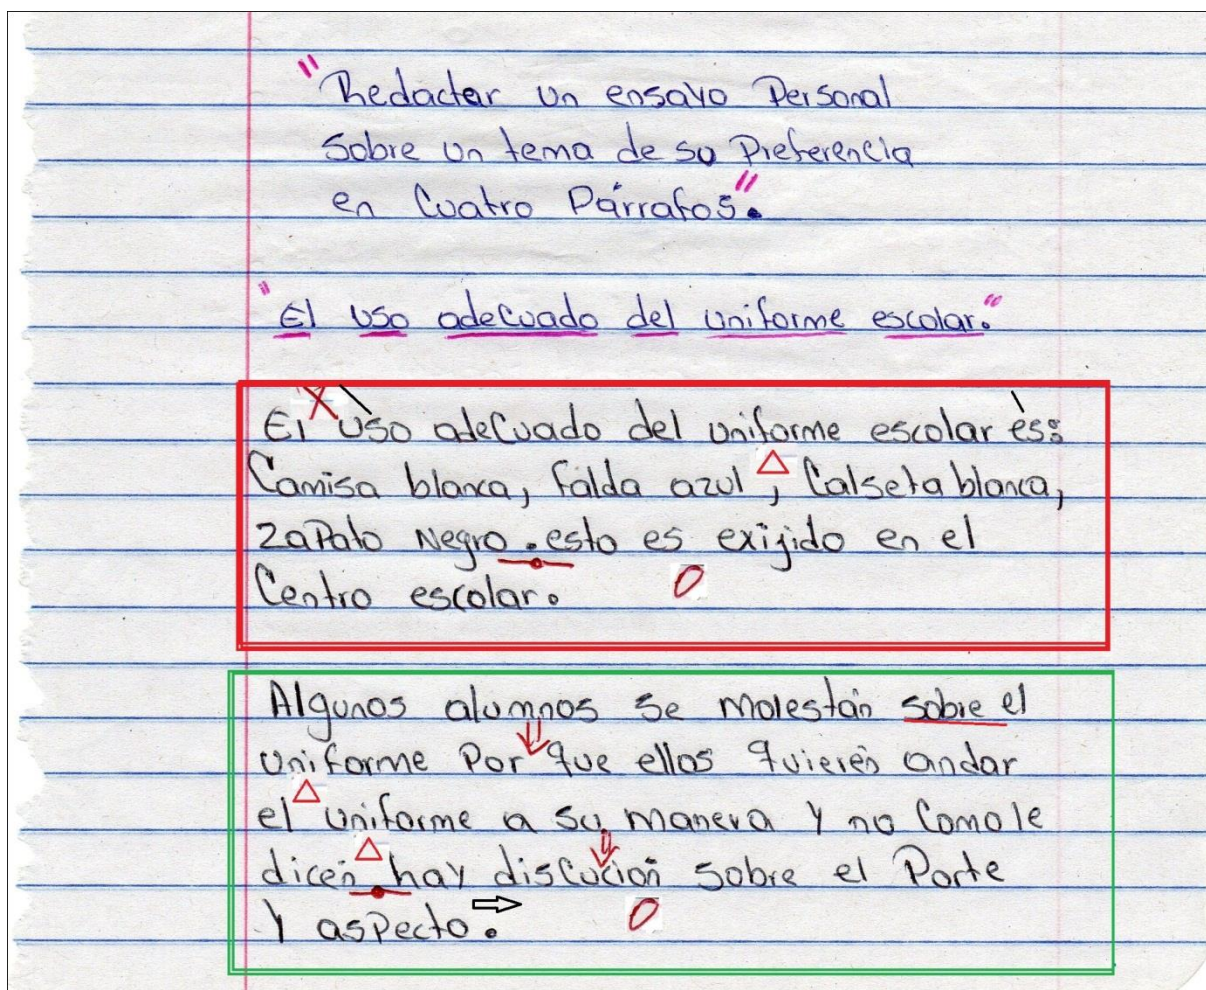 "Redactar un ensayo Personal
Sobre un tema de su Preferencia
en Cuatro Párrafos".
"El uso adecuado del uniforme escolar."
El uso adecuado del uniforme escolar es:
Camisa blanca, falda azul, Calseta blanca,
zapato Negro. esto es exijido en el
Centro escolar.
Algunos alumnos se molestan sobre el
uniforme Por que ellos quieren andar
el uniforme a su manera y no Como le
dicen hay discucion sobre el Porte
y aspecto.